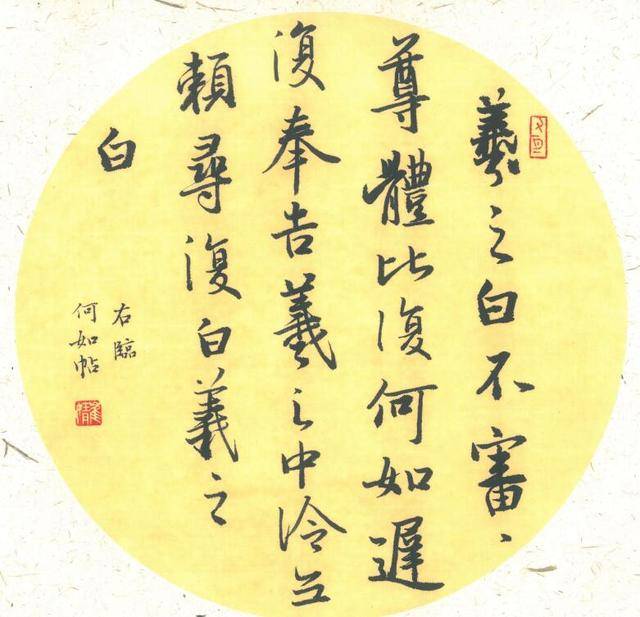 羲之白不審、
尊體比復何如遲
復奉告羲之中冷无
賴尋復白羲之
白
右臨
何如帖